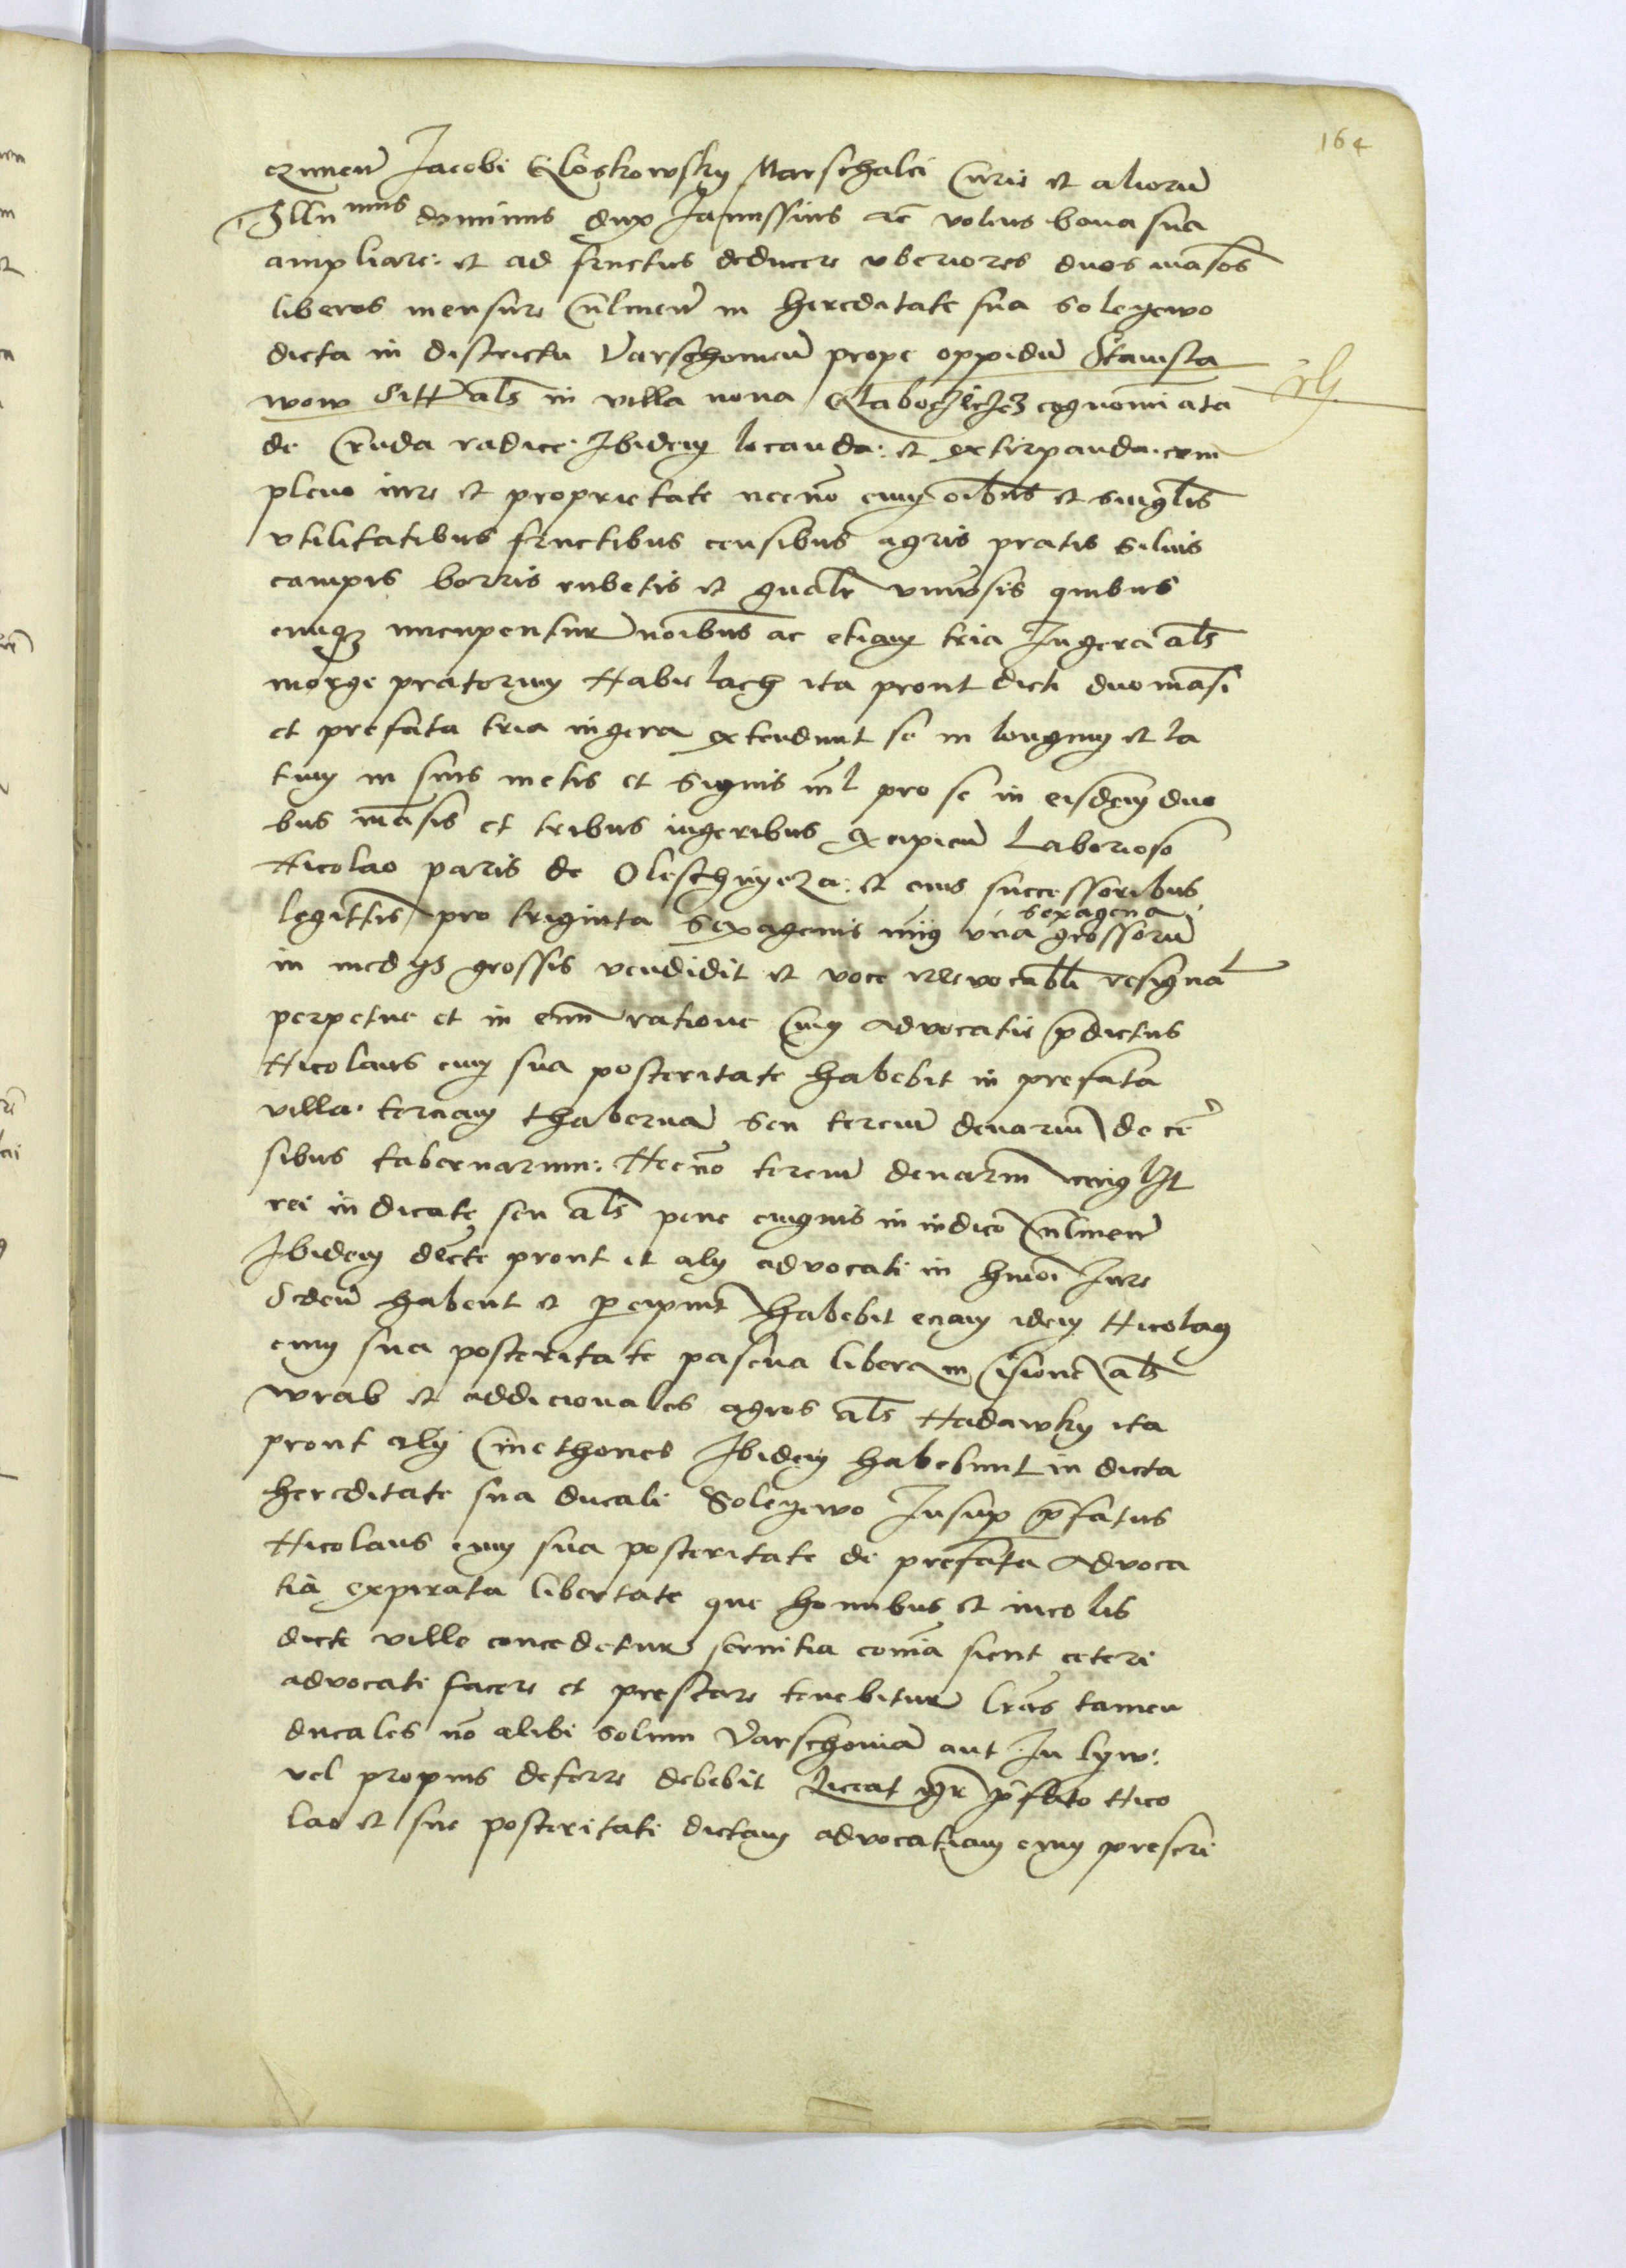 164
eznen̄ Jacobi Gloskowsky Marschalci Curie et aliorū
Illu mus dominus dux Janussius etc̄ volens bona sua
ampliare: et ad fructus deducere vberiores duos māsos
liberos mensure Culmen̄ in hereditate sua Solegewo
dicta in districtu Varschouieū prope oppidū Stanisla
wow Sitt̄ als̄ in villa noua cognominata
de Cruda radice Ibidem locanda: et extirpanda. cum
pleno iure et proprietate necnō cum oībus et singlīs
vtilitatibus fructibus censibus agris pratis siluis
campis borris rubetis et gnalr̄ vniuersis quibus
cumqꝫ nuncupentur noībus ac etiam tria Iugera als̄
morge pratorum Nabielach ita prout dicti duo māsi
et prefata tria iugera extendunt se in longum et la
tum in suis metis et signis nīl pro se in eisdem duo
bus māsis et tribus iugeribus excipien̄ Laborioso
Nicolao paris de Oleschnycza: et eius successoribus
legittīs pro triginta sexagenis minus vna sexagena grossorū
in medys grossis vendidit et voce irreuocabli resignāt
perpetue et in eum ratione Cuius aduocatie p̄dictus
Nicolaus cum sua posteritate habebit in prefata
villa. terciam thabernā seu terciū denariū de cē
sibus tabernarum: Necnō terciū denariū cuiuslibet
rei iudicate seu als̄ pene cuiusuis in iudicō Culmen̄
Ibidem dc̄te prout et aly aduocati in hm̄oi Iure
Seden̄ habent et percipiunt habebit eciam idem Nicolaus
cum sua posteritate pascua libera in Cisione als̄
wrab et addicionales agros als̄ Nadawky ita
prout aly Cmethones Ibidem habebunt in dicta
hereditate sua ducali Solegewo Insup p̄fatus
Nicolaus cum sua posteritate de prefata Aduoca
tia expirata libertate que hominibus et incolis
dicte ville concedetur seruitia com̄ia sicut ceteri
aduocati facere et prestare tenebitur Lrās tamen
ducales nō alibi solum Varschouiā aut In Lyw:
vel propius deferre debebit Liceat p̄fato Nico
lao et sue posteritati dictam aduocatiam cum prescri